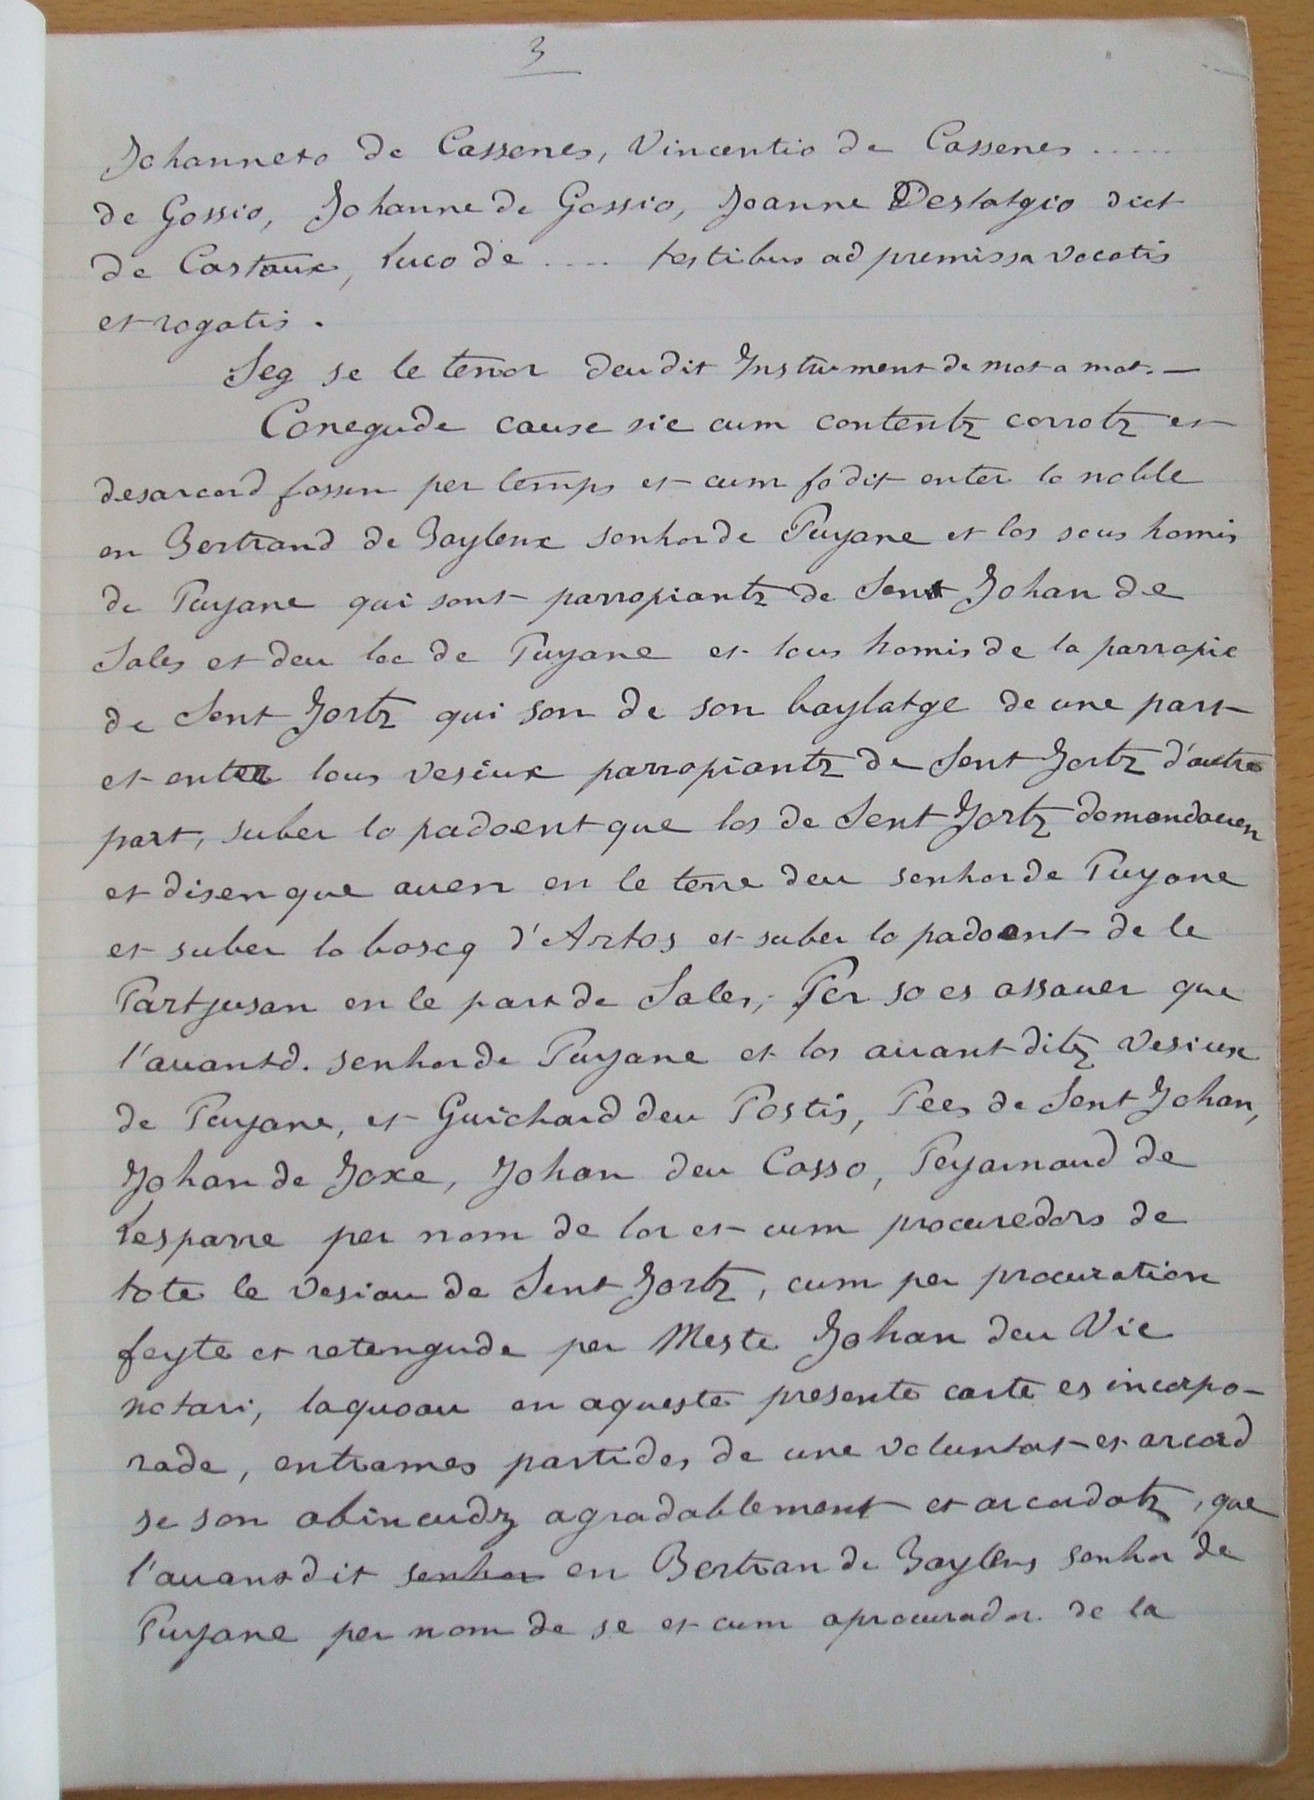 3
Johanneto de Cassenes, Vincentio de Cassenes .....
de Gossio, Johanne de Gossio, Joanne Destatgio dict
de Castaux, Luco de .... testibus ad premissa vocatis
et rogatis.
Seg se le tenor deu dit Instrument de mot a mot. —
Conegude cause sie cum contentz corrotz et
desarcord fossen per temps et cum fo dit enter lo noble
en Bertrand de Baylenx senhor de Puyane et los sous homis
de Puyane qui sont parropiantz de Sent Johan de
Sales et deu loc de Puyane et lous homis de la parropie
de Sent Jortz qui son de son baylatge de une part
et enter lous vesiux parropiantz de Sent Jortz d'autre
part, suber lo padoent que los de Sent Jortz domandauen
et disen que auen en le terre deu senhor de Puyane
et suber lo boscq d'Artos et suber lo padoent de le
Partjusan en le part de Sales, Per so es assauer que
l'auantd. senhor de Puyane et los auantditz vesiux
de Puyane, et Guichard deu Postis, Pees de Sent Johan,
Johan de Joxe, Johan deu Casso, Peyarnaud de
Lesparre per nom de lor et cum procuredors de
tote le vesiau de Sent Jortz, cum per procuration
feyte et retengude per Meste Johan deu Vic
notari, laquoau en aqueste presente carte es incorpo-
rade, entrames partides de une voluntat et arcord
se son abincudz agradablement et arcordatz, que
l'auantdit senhor en Bertran de Baylens senhor de
Puyane per nom de se et cum aprocurador de la